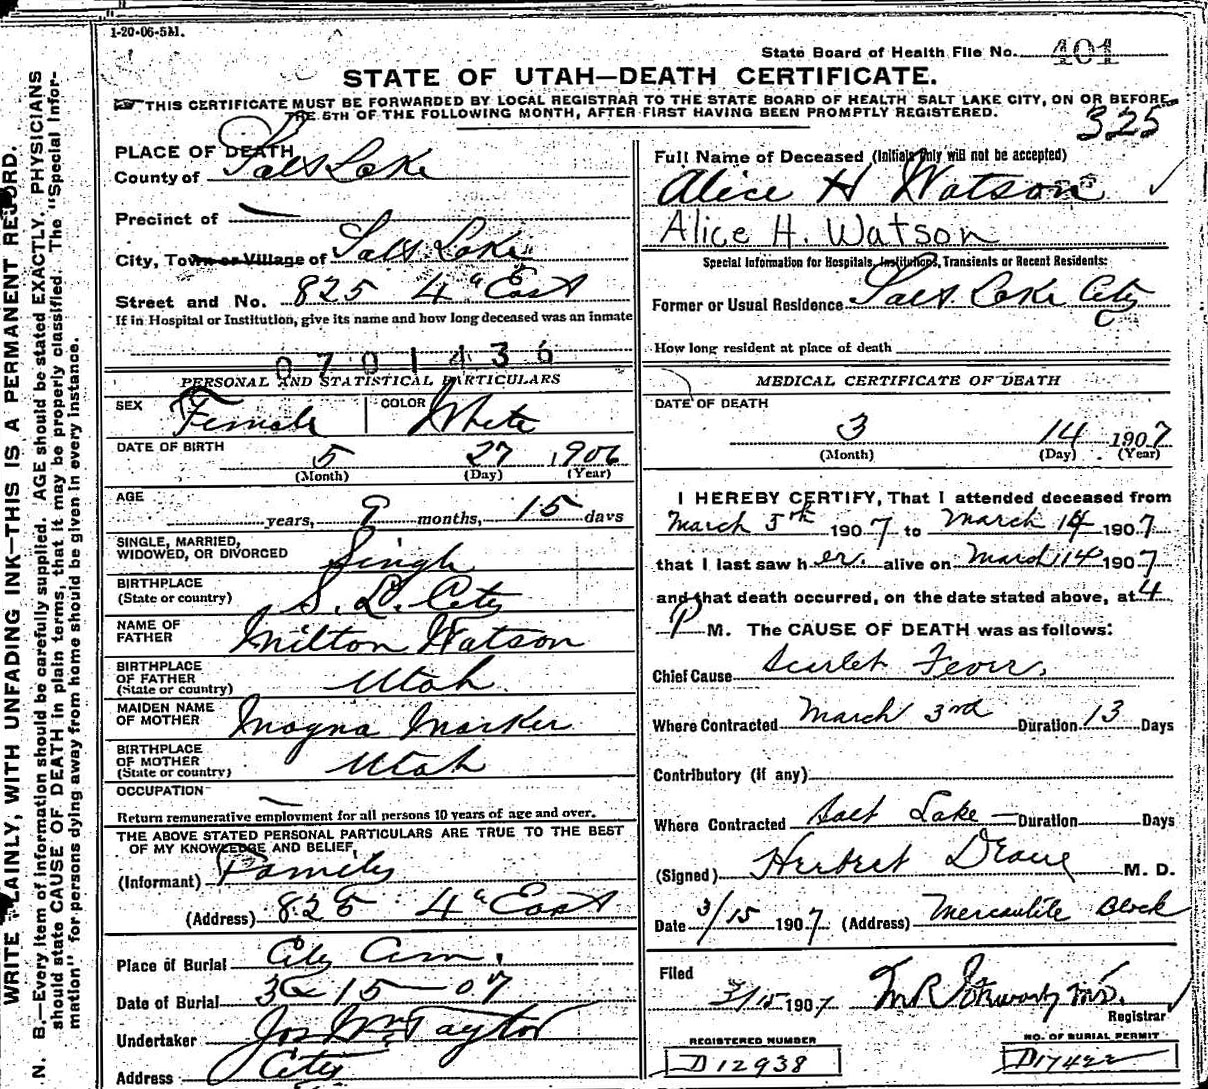 1-20-06-5M.
State Board of Health File No. 401
STATE OF UTAH—DEATH CERTIFICATE.
THIS CERTIFICATE MUST BE FORWARDED BY LOCAL REGISTRAR TO THE STATE BOARD OF HEALTH SALT LAKE CITY, ON OR BEFORE
THE 5TH OF THE FOLLOWING MONTH, AFTER FIRST HAVING BEEN PROMPTLY REGISTERED.
325
PLACE OF DEATH
County of Salt Lake
Precinct of —
City, Town or Village of Salt Lake
Street and No. 825 4" East
If in Hospital or Institution, give its name and how long deceased was an inmate
0701436
PERSONAL AND STATISTICAL PARTICULARS
SEX Female COLOR White
DATE OF BIRTH 5 27 1906
(Month) (Day) (Year)
AGE years, 9 months, 15 days
SINGLE, MARRIED,
WIDOWED, OR DIVORCED Single
BIRTHPLACE
(State or country) S. L. City
NAME OF
FATHER Milton Watson
BIRTHPLACE
OF FATHER
(State or country) Utah
MAIDEN NAME
OF MOTHER Magna Marker
BIRTHPLACE
OF MOTHER
(State or country) Utah
OCCUPATION —
Return remunerative employment for all persons 10 years of age and over.
THE ABOVE STATED PERSONAL PARTICULARS ARE TRUE TO THE BEST
OF MY KNOWLEDGE AND BELIEF.
(Informant) Family
(Address) 825 4" East
Place of Burial City Cem.
Date of Burial 3-15-07
Undertaker Jos Wm Taylor
Address City
Full Name of Deceased (Initials only will not be accepted)
Alice H Watson
Alice H. Watson
Special Information for Hospitals, Institutions, Transients or Recent Residents:
Former or Usual Residence Salt Lake City
How long resident at place of death
MEDICAL CERTIFICATE OF DEATH
DATE OF DEATH
3 14 1907
(Month) (Day) (Year)
I HEREBY CERTIFY, That I attended deceased from
March 5th 1907 to March 14 1907
that I last saw her alive on March 14 1907
and that death occurred, on the date stated above, at 4
P M. The CAUSE OF DEATH was as follows:
Chief Cause Scarlet Fever,
Where Contracted March 3rd Duration 13 Days
Contributory (if any)
Where Contracted Salt Lake — Duration Days
(Signed) Herbert M. D.
Date 3/15 1907 (Address) Mercantile Block
Filed
3/15 1907
Registrar
REGISTERED NUMBER
D 12938
NO. OF BURIAL PERMIT
D17422
WRITE PLAINLY, WITH UNFADING INK—THIS IS A PERMANENT RECORD.
N. B.—Every item of information should be carefully supplied. AGE should be stated EXACTLY. PHYSICIANS
should state CAUSE OF DEATH in plain terms, that it may be properly classified. The "Special Infor-
mation" for persons dying away from home should be given in every instance.